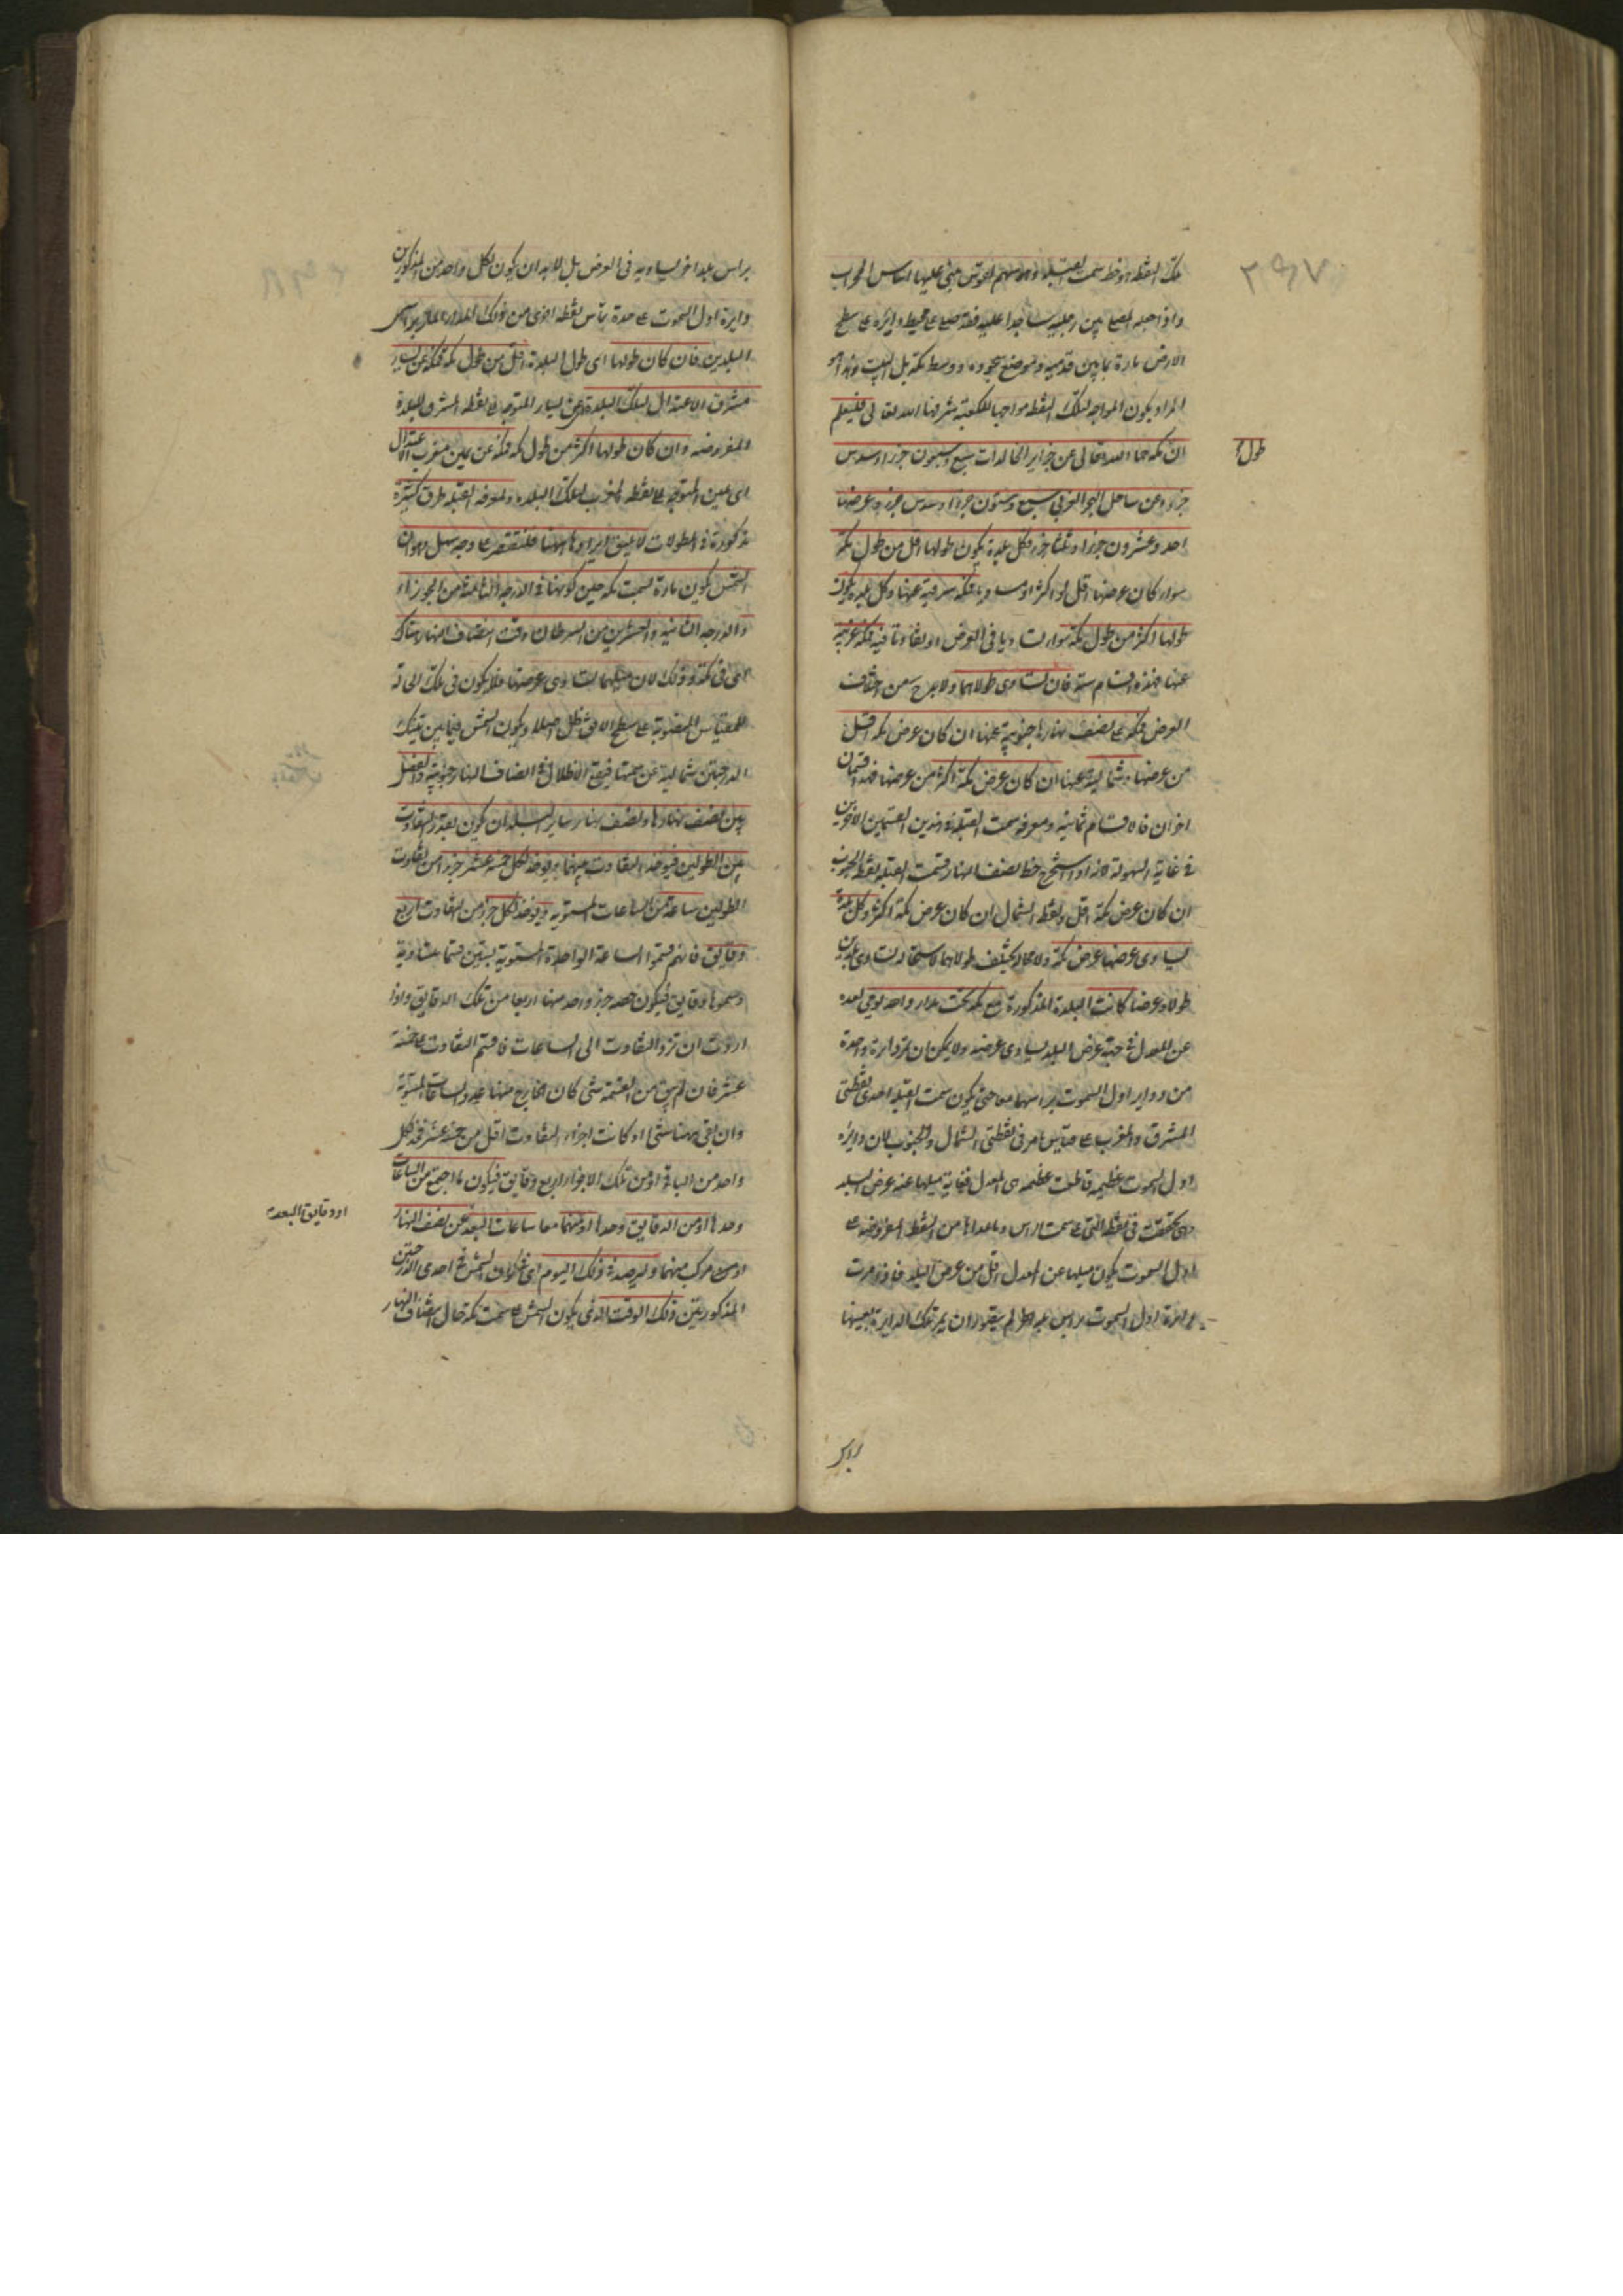 تلك النقطة هو خط سمت القبلة وهو سهم القوس مبنى عليها اساس المحراب
واذا جعله المصلى بين رجليه ساجدا عليه فقد صلى على محيط دايرة على سطح
الارض مارة بما بين قدميه وموضع سجوده ووسط مكة بل البيت وهذا هو
المراد بكون المواجه لتلك النقطة مواجها للكعبة شرفها الله تعالى فليعلم
ان مكة حماها الله تعالى عن جزاير الخالدات سبع وسبعون جزءا وسدس
طول
جزء وعن ساحل البحر الغربي سبع وستون جزءا وسدس جزء وعرضها
احد وعشرون جزءا وثلثا جزء فكل بلدة يكون طولها اقل من طول مكة
سواء كان عرضها اقل او اكثر او مساويا فمكة شرقية عنها وكل بلدة يكون
طولها اكثر من طول مكة سواء تساويا فى العرض او تفاوتا فيه فمكة غربية
عنها فهذه اقسام ستة فان تساوى طولاهما ولا بد ح من اختلاف
العرض فمكة على نصف نهارها جنوبية عنها ان كان عرض مكة اقل
من عرضها وشمالية عنها ان كان عرض مكة اكثر من عرضها فهذا قسمان
اخران فالاقسام ثمانية ومعرفة سمت القبلة فى هذين القسمين الاخيرين
فى غاية السهولة لانه اذا استخرج خط نصف النهار فسمت القبلة نقطة الجنوب
ان كان عرض مكة اقل ونقطة الشمال ان كان عرض مكة اكثر وكل بلدة
يساوى عرضها عرض مكة ولا محالة يختلف طولاهما لاستحالة تساوى بلدين
طولا وعرضا كانت البلدة المذكورة مع مكة تحت مدار واحد يومى بعده
عن المعدل فى جهة عرض البلد يساوى عرضه ولا يمكن ان تمر دايرة واحدة
من دواير اول السموت براسهما معا حتى يكون سمت القبلة احدى نقطتى
المشرق والمغرب على قياس ما مر فى نقطتى الشمال والجنوب لان دايرة
اول السموت عظيمة قاطعت عظيمة هى المعدل فغاية ميلها عنه عرض البلد
وهى تحققت فى نقطة التى على سمت الراس وما عداها من النقط المفروضة على
اول السموت يكون ميلها عن المعدل اقل من عرض البلد فاذا مرت
دايرة اول السموت براس بلد لم يتصور ان يمر تلك الدايرة بعينها
براس
براس بلد اخر يساويه فى العرض بل لا بد ان يكون لكل واحد من المذكورين
دايرة اول السموت على حدة تماس نقطة اخرى من ذلك المدار المار براس
البلدين فان كان طولها اى طول البلدة اقل من طول مكة فمكة عن يسار
مشرق الاعتدال لتلك البلدة اى عن يسار المتوجه الى نقطة المشرق للبلدة
المفروضة وان كان طولها اكثر من طول مكة فمكة عن يمين مغرب الاعتدال
اى يمين المتوجه الى نقطة المغرب لتلك البلدة ولمعرفة القبلة طرق كثيرة
مذكورة فى المطولات لا يليق ايرادها ههنا فلنقتصر على وجه سهل وهو ان
الشمس يكون مارة بسمت مكة حين كونها فى الدرجة الثامنة من الجوزاء
والدرجة الثانية والعشرين من السرطان وقت انتصاف النهار هناك
اى فى مكة وذلك لان ميلهما يساوى عرضها فلا يكون فى تلك الحالة
للمقياس المنصوبة على سطح الافق ظل اصلا ويكون الشمس فيما بين تينك
الدرجتين شمالية عن سمتها فيقع الاظلال فى انصاف النهار جنوبية والفضل
بين نصف نهارها ونصف نهار ساير البلدان يكون بقدر التفاوت
بين الطولين فيوخذ التفاوت بينهما ويوخذ لكل خمسة عشر جزءا من تفاوت
الطولين ساعة من الساعات المستوية ويوخذ لكل جزء من التفاوت اربع
دقايق فانهم قسموا الساعة الواحدة المستوية بستين قسما متساوية
وسموها دقايق فيكون حصة جزء واحد منها اربعا من تلك الدقايق واذا
اردت ان ترد التفاوت الى الساعات فاقسم التفاوت على خمسة
عشر فان لم يبق من القسمة شئ كان الخارج منها عدد الساعات المستوية
وان بقى منها شئ او كانت اجزاء التفاوت اقل من خمسة عشر فخذ لكل
واحد من الباقى او من تلك الاجزاء اربع دقايق فيكون ما اجتمع من الساعات
وحدها او من الدقايق وحدها او منهما معا ساعات البعد عن نصف النهار
او دقايق البعد
او من مركب منهما وليرصد فى ذلك اليوم اى فى كون الشمس فى احدى الدرجتين
المذكورتين ذلك الوقت الذى يكون الشمس على سمت مكة حال انتصاف النهار